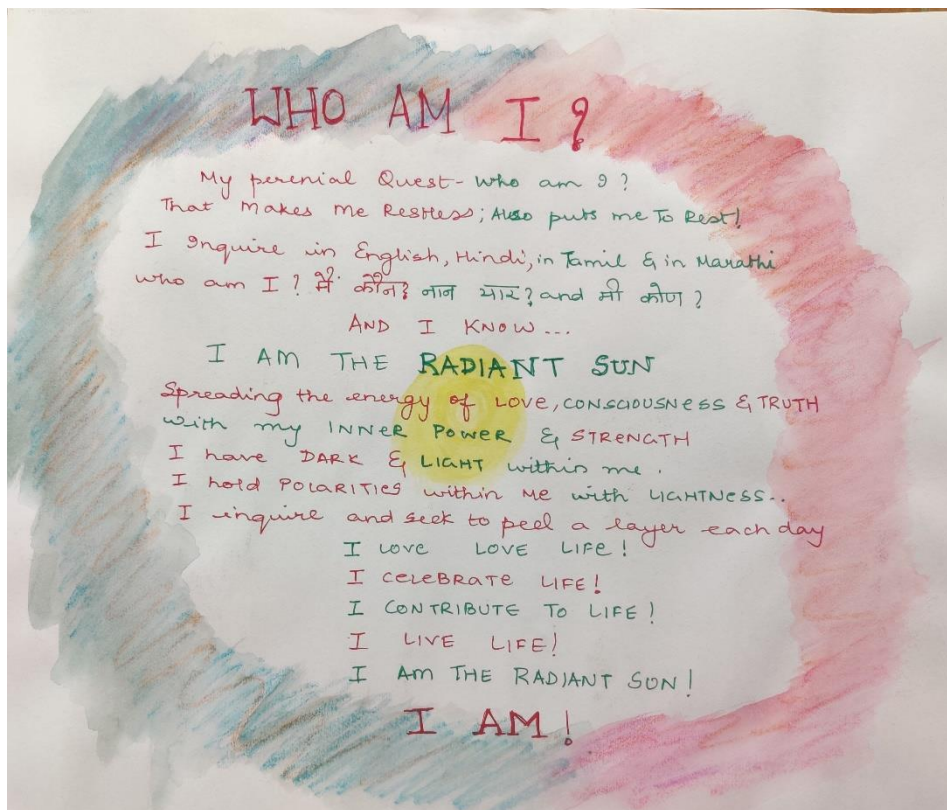 WHO AM I?
My perenial Quest- who am I?
That makes me Restless; Also puts me To Rest!
I Inquire in English, Hindi, in Tamil & in Marathi
who am I? मैं कौन? नान यार? and मी कोण?
AND I KNOW...
I AM THE RADIANT SUN
Spreading the energy of LOVE, CONSCIOUSNESS & TRUTH
with my INNER POWER & STRENGTH
I have DARK & LIGHT within me.
I hold POLARITIES within me with LIGHTNESS..
I inquire and seek to peel a layer each day
I LOVE LOVE LIFE!
I CELEBRATE LIFE!
I CONTRIBUTE TO LIFE!
I LIVE LIFE!
I AM THE RADIANT SUN!
I AM!